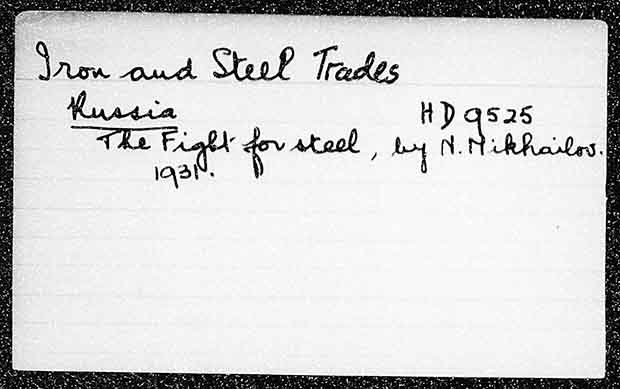 Iron and Steel Trades
Russia HD 9525
The Fight for steel, by N. Mikhailov.
1931.